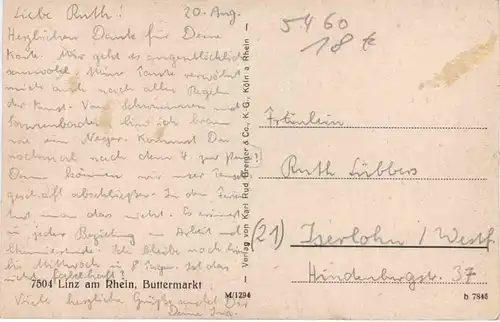 Liebe Ruth! 20. Aug.
Herzlichen Dank für Deine
Karte. Mir geht es augenblicklich
sauwohl. Meine Tante verwöhnt
mich auch nach allen Regeln
der Kunst. Vom Schwimmen und
Sonnenbaden bin ich braun
wie ein Neger. Kommst Du
nochmal nach dem 4. zur
Dann können wir unser
geschäft abschließen. In den
tut man das nicht. Es erinnert
in jeder Beziehung an Arbeit und
Ich bleibe noch hier
bis Mittwoch in 8 Tagen. Ist das
nicht fabelhaft?
7504 Linz am Rhein, Buttermarkt
Viele herzliche Grüße sendet Dir
Deine
M/1294
Verlag von Karl Rud. Bremer & Co., K.-G., Köln a. Rhein
5460
18 €
Fräulein
Ruth Lübbers
(21) Iserlohn / Westf.
Hindenburgstr. 37
b 7846